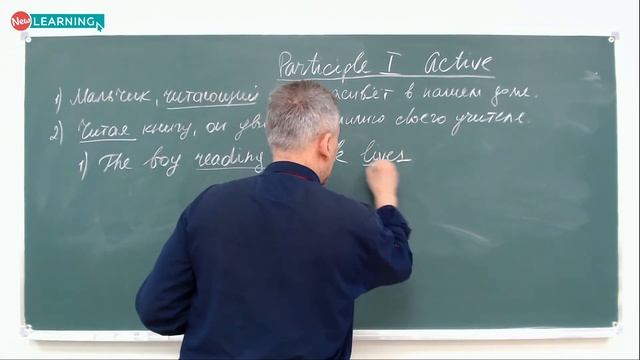 New LEARNING
Participle I Active
1) Мальчик, читающий живёт в нашем доме.
2) Читая книгу, он своего учителя.
1) The boy reading lives